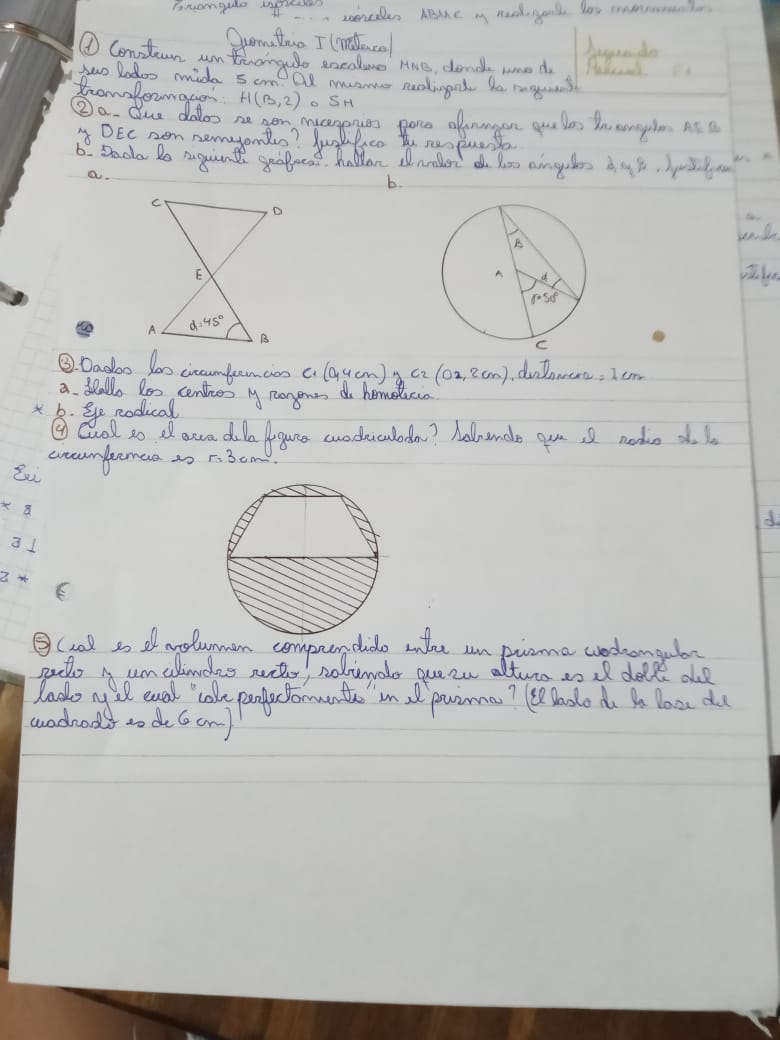 Triángulo isósceles
isósceles ABMC y realizarle los movimientos
Geometría I (Métrica)
Segundo
Parcial
① Construir un triángulo escaleno MNB, donde uno de
sus lados mida 5 cm. Al mismo realizarle la siguiente
transformación: H(B,2) o SM
② a- Que datos se son necesarios para afirmar que los triangulos AEB
y DEC son semejantes? Justifica tu respuesta.
b- Dada la siguiente gráfica, hallar el valor de los ángulos
a. b.
C
D
E
A
d=45°
B
B
A
d
γ=50°
C
③ Dados las circunferencias C1 (O, 4cm) y C2 (O2, 2cm), distancia = 7cm
a- Halla los centros y razones de homotecia
* b- Eje radical
④ Cual es el area de la figura cuadriculada? Sabiendo que el radio de la
circunferencia es r=3cm.
⑤ Cual es el volumen comprendido entre un prisma cuadrangular
recto y un cilindro recto, sabiendo que su altura es el doble del
lado y el cual "cabe perfectamente" en el prisma? (El lado de la base del
cuadrado es de 6 cm)